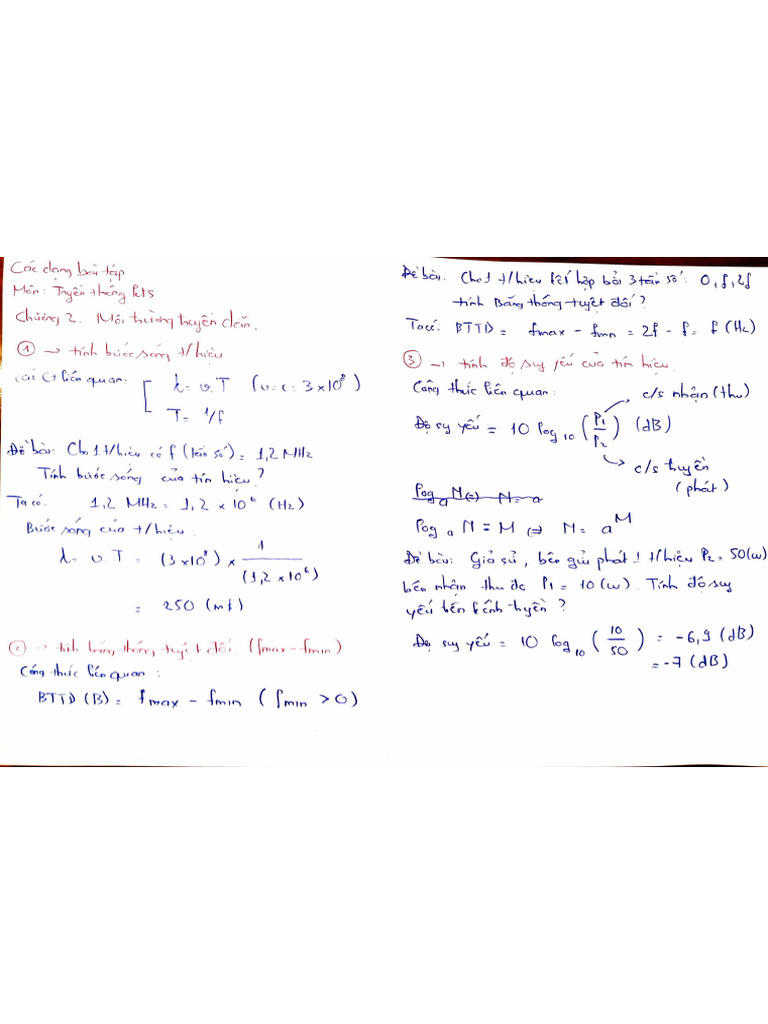 Các dạng bài tập
Môn: Truyền thông Kts
Chương 2. Môi trường truyền dẫn.
① → tính bước sóng t/hiệu
Các Ct liên quan: [ λ = v.T (v=c=3×10⁸)
T = 1/f
Đề bài: Cho 1 t/hiệu có f (tần số) = 1,2 MHz
Tính bước sóng của tín hiệu?
Ta có: 1,2 MHz = 1,2 × 10⁶ (Hz)
Bước sóng của t/hiệu:
λ = v.T = (3×10⁸) × 1/(1,2×10⁶)
= 250 (m)
② → tính băng thông tuyệt đối (fmax – fmin)
Công thức liên quan:
BTTD (B) = fmax – fmin (fmin > 0)
Đề bài: Cho 1 t/hiệu kết hợp bởi 3 tần số: 0, f, 2f
tính Băng thông tuyệt đối?
Ta có: BTTD = fmax – fmin = 2f – f = f (Hz)
③ → tính độ suy yếu của tín hiệu.
Công thức liên quan: c/s nhận (thu)
Độ suy yếu = 10 log₁₀ (P₁/P₂) (dB)
c/s truyền
(phát)
log a N = M ⇔ N = a^M
Đề bài: Giả sử, bên gửi phát 1 t/hiệu P₂ = 50(w)
bên nhận thu đc P₁ = 10(w). Tính độ suy
yếu bên kênh truyền?
Độ suy yếu = 10 log₁₀ (10/50) = -6,9 (dB)
= -7 (dB)